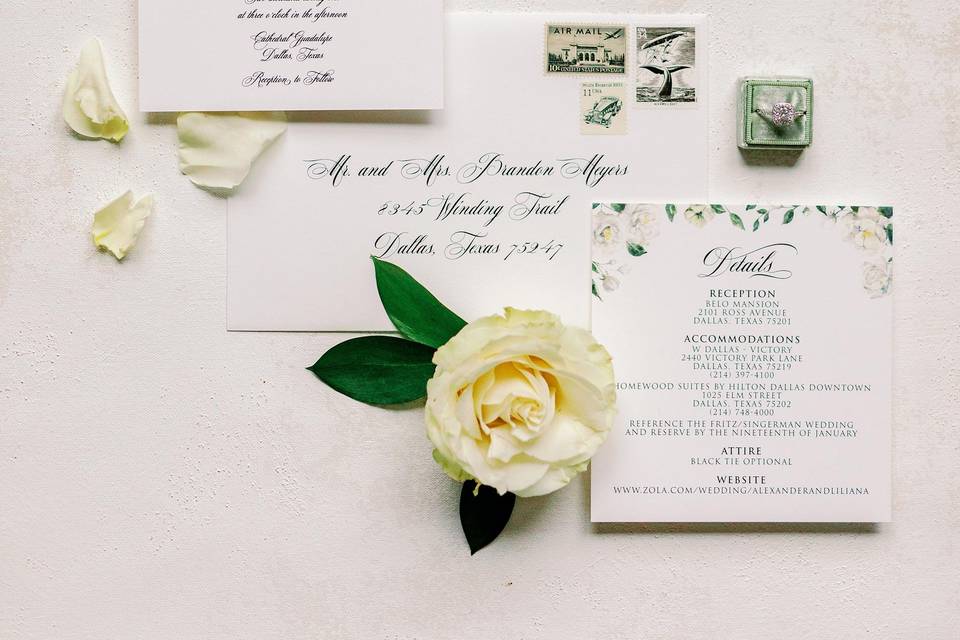 at three o'clock in the afternoon
Cathedral Guadalupe
Dallas, Texas
Reception to Follow
AIR MAIL
10¢ UNITED STATES POSTAGE
11
Mr. and Mrs. Brandon Meyers
8345 Winding Trail
Dallas, Texas 75247
Details
RECEPTION
BELO MANSION
2101 ROSS AVENUE
DALLAS, TEXAS 75201
ACCOMMODATIONS
W DALLAS - VICTORY
2440 VICTORY PARK LANE
DALLAS, TEXAS 75219
(214) 397-4100
HOMEWOOD SUITES BY HILTON DALLAS DOWNTOWN
1025 ELM STREET
DALLAS, TEXAS 75202
(214) 748-4000
REFERENCE THE FRITZ/SINGERMAN WEDDING
AND RESERVE BY THE NINETEENTH OF JANUARY
ATTIRE
BLACK TIE OPTIONAL
WEBSITE
WWW.ZOLA.COM/WEDDING/ALEXANDERANDLILIANA